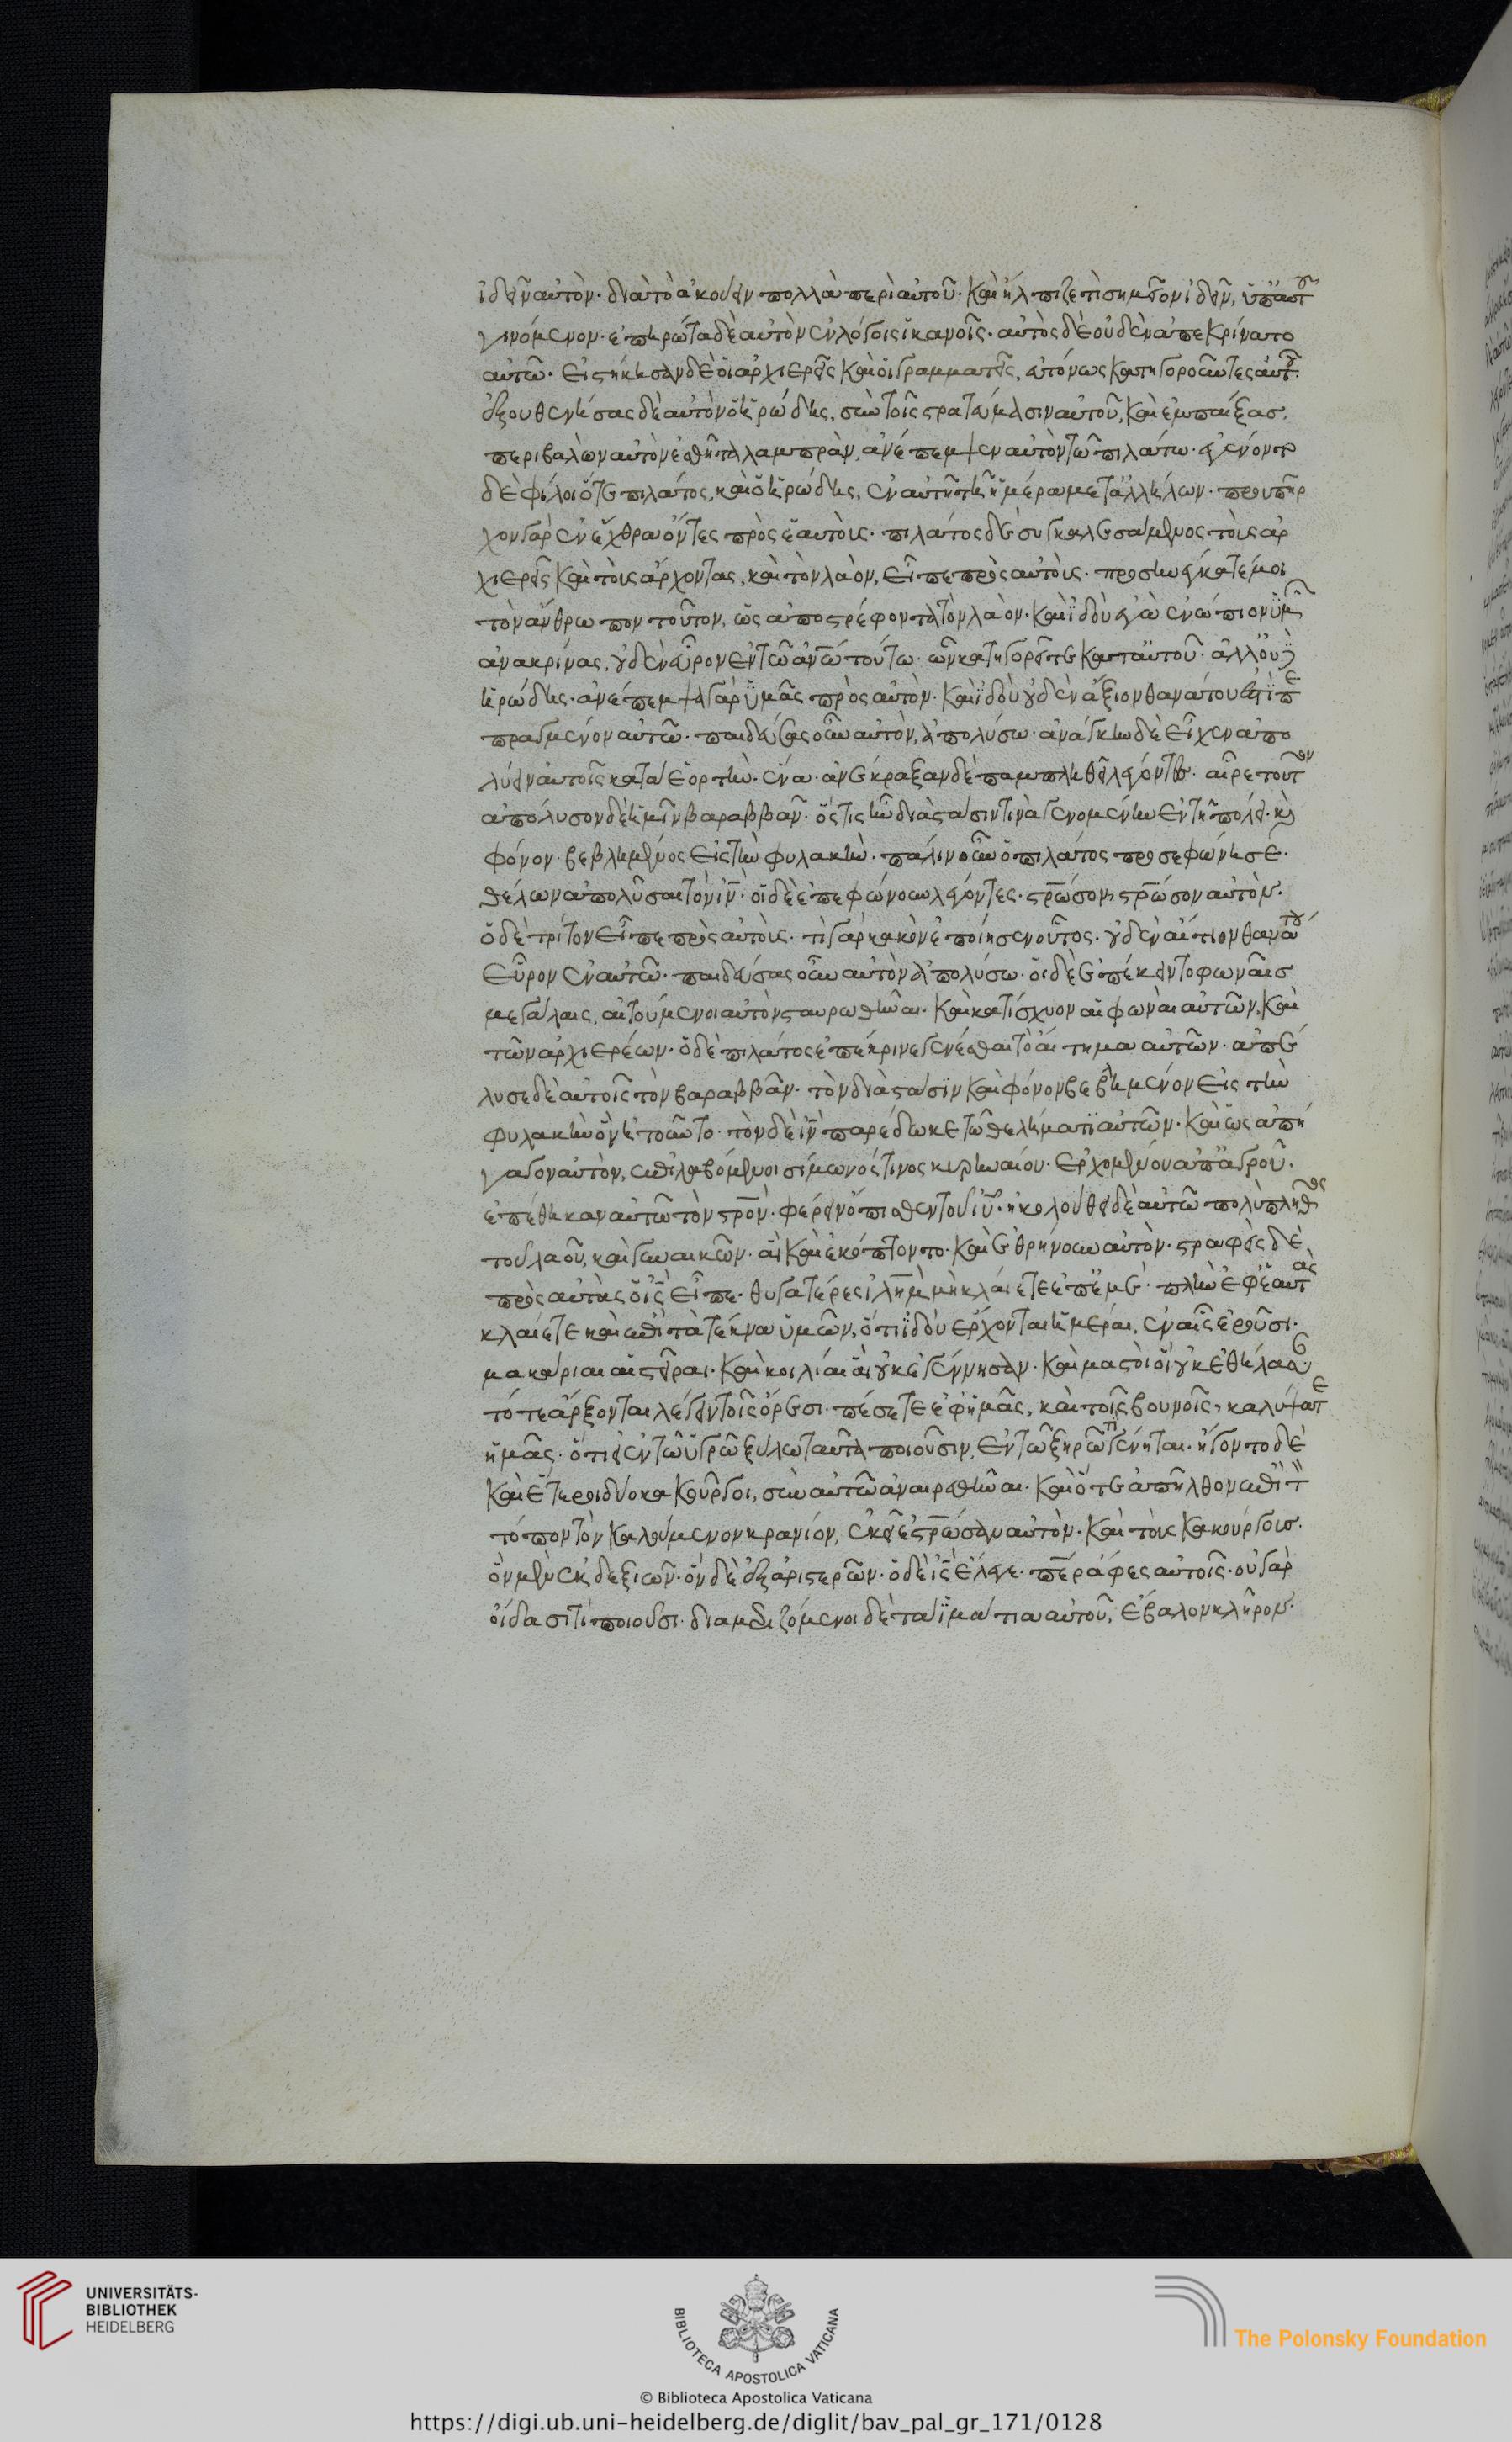 ἰδεῖν αὐτὸν· διὰ τὸ ἀκούειν πολλὰ περὶ αὐτοῦ· καὶ ἤλπιζέ τι σημεῖον ἰδεῖν, ὑπ' αὐτοῦ
γινόμενον· ἐπηρώτα δὲ αὐτὸν ἐν λόγοις ἱκανοῖς· αὐτὸς δὲ οὐδὲν ἀπεκρίνατο
αὐτῶ· εἱστήκησαν δὲ οἱ ἀρχιερεῖς καὶ οἱ γραμματεῖς, εὐτόνως κατηγοροῦντες αὐτοῦ·
ἐξουθενήσας δὲ αὐτὸν ὁ ἡρώδης, σὺν τοῖς στρατεύμασιν αὐτοῦ, καὶ ἐμπαίξας,
περιβαλὼν αὐτὸν ἐσθῆτα λαμπρὰν, ἀνέπεμψεν αὐτὸν τῶ πιλάτω· ἐγένοντο
δὲ φίλοι ὅτε πιλάτος, καὶ ὁ ἡρώδης, ἐν αὐτῆ τῆ ἡμέρα μετ' ἀλλήλων· προϋπῆρ
χον γὰρ ἐν ἔχθρα ὄντες πρὸς ἑαυτοὺς· πιλάτος δὲ συγκαλεσάμενος τοὺς ἀρ
χιερεῖς καὶ τοὺς ἄρχοντας, καὶ τὸν λαὸν, εἶπε πρὸς αὐτοὺς· προσηνέγκατέ μοι
τὸν ἄνθρωπον τοῦτον, ὡς ἀποστρέφοντα τὸν λαὸν· καὶ ἰδοὺ ἐγὼ ἐνώπιον ὑμῶν
ἀνακρίνας, οὐδὲν εὗρον ἐν τῶ ἀνῶ τούτω· ὧν κατηγορεῖτε κατ' αὐτοῦ· ἀλλ' οὐδὲ
ἡρώδης· ἀνέπεμψα γὰρ ὑμᾶς πρὸς αὐτὸν· καὶ ἰδοὺ οὐδὲν ἄξιον θανάτου ἐστὶ πε
πραγμένον αὐτῶ· παιδεύσας οὖν αὐτὸν, ἀπολύσω· ἀνάγκην δὲ εἶχεν ἀπο
λύειν αὐτοῖς κατὰ ἑορτὴν· ἕνα· ἀνέκραξαν δὲ παμπληθεὶ λέγοντες· αἶρε τοῦτον
ἀπόλυσον δὲ ἡμῖν βαραββᾶν· ὅστις ἦν διὰ στάσιν τινὰ γενομένην ἐν τῆ πόλει· καὶ
φόνον· βεβλημένος εἰς τὴν φυλακὴν· πάλιν οὖν ὁ πιλάτος προσεφώνησε·
θέλων ἀπολῦσαι τὸν ἰν· οἱ δὲ ἐπεφώνουν λέγοντες· στρωσον, στρωσον αὐτὸν·
ὁ δὲ τρίτον εἶπε πρὸς αὐτοὺς· τί γὰρ κακὸν ἐποίησεν οὗτος· οὐδὲν αἴτιον θανάτου
εὗρον ἐν αὐτῶ· παιδεύσας οὖν αὐτὸν ἀπολύσω· οἱ δὲ ἐπέκειντο φωναῖς
μεγάλαις, αἰτούμενοι αὐτὸν σταυρωθῆναι· καὶ κατίσχυον αἱ φωναὶ αὐτῶν, καὶ
τῶν ἀρχιερέων· ὁ δὲ πιλάτος ἐπέκρινε γενέσθαι τὸ αἴτημα αὐτῶν· ἀπέ
λυσε δὲ αὐτοῖς τὸν βαραββᾶν· τὸν διὰ στάσιν καὶ φόνον βεβλημένον εἰς τὴν
φυλακὴν ὃν ἠτοῦντο· τὸν δὲ ἰν παρέδωκε τῶ θελήματι αὐτῶν· καὶ ὡς ἀπή
γαγον αὐτὸν, ἐπιλαβόμενοι σίμωνός τινος κυρηναίου· ἐρχομένου ἀπ' ἀγροῦ·
ἐπέθηκαν αὐτῶ τὸν στρον· φέρειν ὄπισθεν τοῦ ἰυ· ἠκολούθει δὲ αὐτῶ πολὺ πλῆθος
τοῦ λαοῦ, καὶ γυναικῶν· αἳ καὶ ἐκόπτοντο· καὶ ἐθρήνουν αὐτὸν· στραφεὶς δὲ
πρὸς αὐτὰς ὁ ις εἶπε· θυγατέρες ἰλημ μὴ κλαίετε ἐπ' ἐμέ· πλὴν ἐφ' ἑαυτὰς
κλαίετε καὶ ἐπὶ τὰ τέκνα ὑμῶν, ὅτι ἰδοὺ ἔρχονται ἡμέραι, ἐν αἷς ἐροῦσι·
μακάριαι αἱ στεῖραι· καὶ κοιλίαι αἳ οὐκ ἐγέννησαν· καὶ μαστοὶ οἳ οὐκ ἐθήλασαν
τότε ἄρξονται λέγειν τοῖς ὄρεσι· πέσετε ἐφ' ἡμᾶς, καὶ τοῖς βουνοῖς, καλύψατε
ἡμᾶς· ὅτι εἰ ἐν τῶ ὑγρῶ ξύλω ταῦτα ποιοῦσιν, ἐν τῶ ξηρῶ τί γένηται· ἤγοντο δὲ
καὶ ἕτεροι δύο κακοῦργοι, σὺν αὐτῶ ἀναιρεθῆναι· καὶ ὅτε ἀπῆλθον ἐπὶ τὸν
τόπον τὸν καλούμενον κρανίον, ἐκεῖ ἐστρωσαν αὐτὸν· καὶ τοὺς κακούργους·
ὃν μὲν ἐκ δεξιῶν· ὃν δὲ ἐξ ἀριστερῶν· ὁ δὲ ις ἔλεγε· περ ἄφες αὐτοῖς· οὐ γὰρ
οἴδασι τί ποιοῦσι· διαμεριζόμενοι δὲ τὰ ἱμάτια αὐτοῦ, ἔβαλον κλῆρον·
UNIVERSITÄTS-
BIBLIOTHEK
HEIDELBERG
BIBLIOTECA APOSTOLICA VATICANA
The Polonsky Foundation
© Biblioteca Apostolica Vaticana
https://digi.ub.uni-heidelberg.de/diglit/bav_pal_gr_171/0128